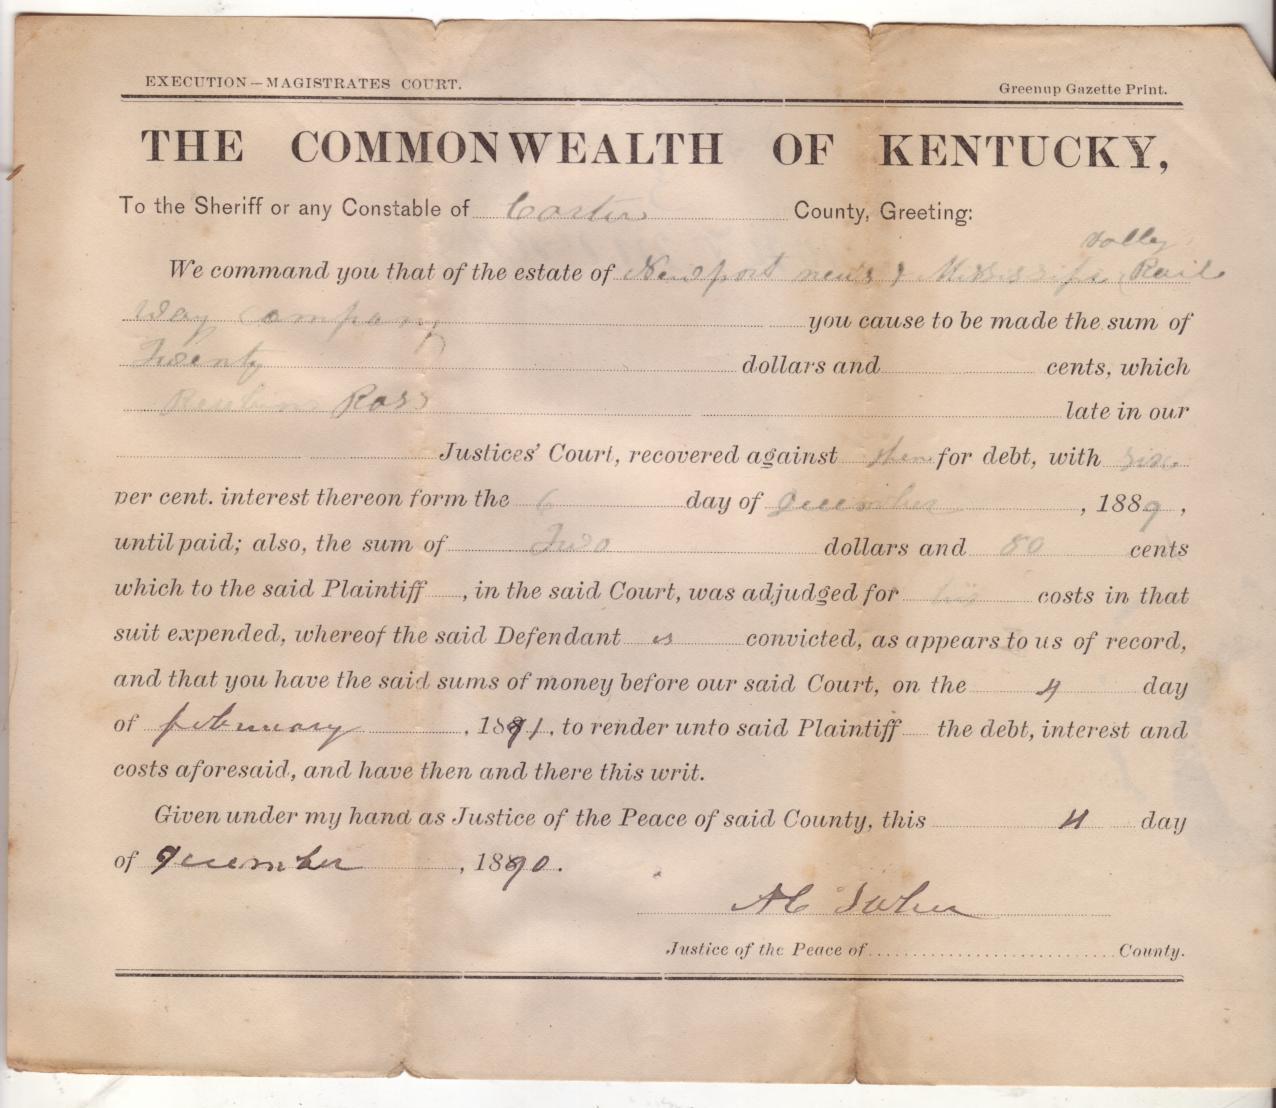 EXECUTION—MAGISTRATES COURT. Greenup Gazette Print.
THE COMMONWEALTH OF KENTUCKY,
To the Sheriff or any Constable of Carter County, Greeting:
Valley
We command you that of the estate of Newport news & Mississippi Rail
way company you cause to be made the sum of
Twenty dollars and cents, which
Reubin Ross late in our
Justices' Court, recovered against them for debt, with six
per cent. interest thereon form the 6 day of December, 1889,
until paid; also, the sum of Two dollars and 80 cents
which to the said Plaintiff, in the said Court, was adjudged for his costs in that
suit expended, whereof the said Defendant is convicted, as appears to us of record,
and that you have the said sums of money before our said Court, on the 4 day
of february, 1891, to render unto said Plaintiff the debt, interest and
costs aforesaid, and have then and there this writ.
Given under my hand as Justice of the Peace of said County, this 4 day
of December, 1890.
A C
Justice of the Peace of County.